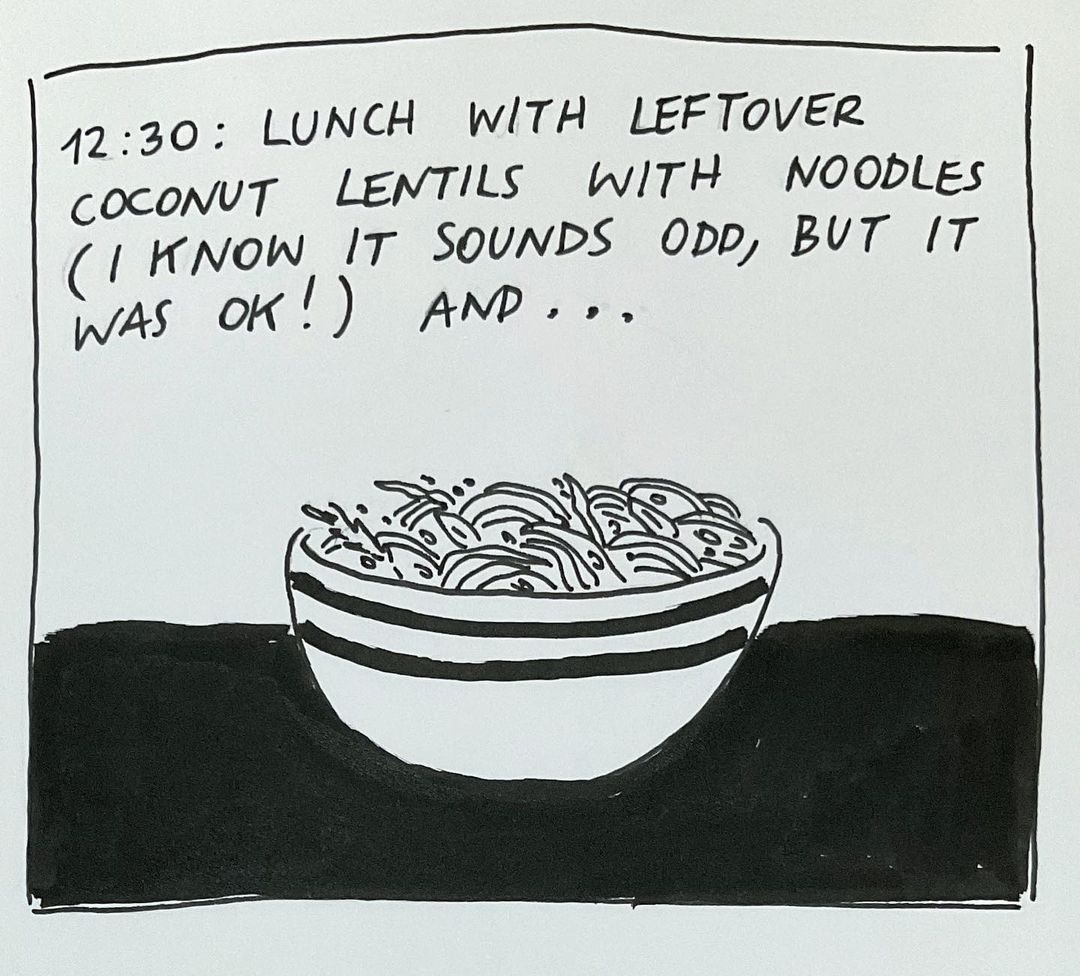 12:30: LUNCH WITH LEFTOVER
COCONUT LENTILS WITH NOODLES
(I KNOW IT SOUNDS ODD, BUT IT
WAS OK!) AND...